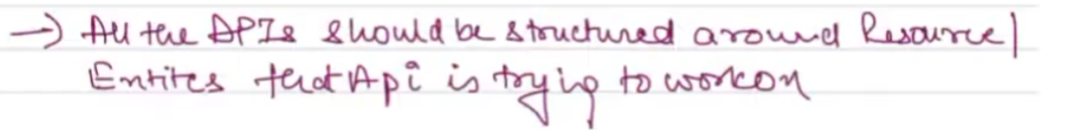 → All the APIs should be structured around Resource/
Entites that Api is trying to work on